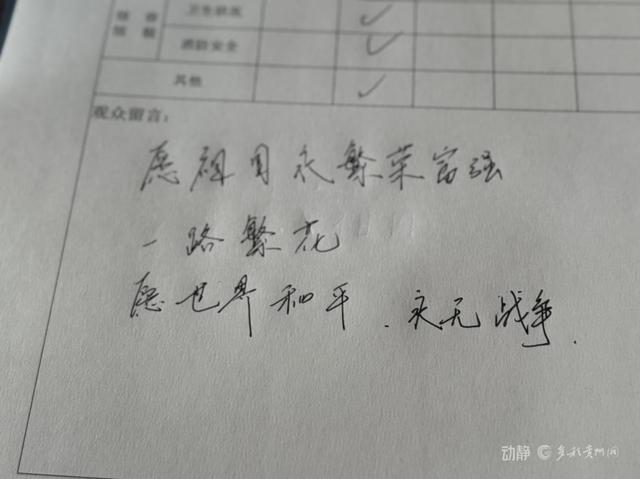 卫生状况
消防安全
其他
观众留言:
愿祖国永繁荣富强
一路繁花
愿世界和平.永无战争.
动静 多彩贵州网